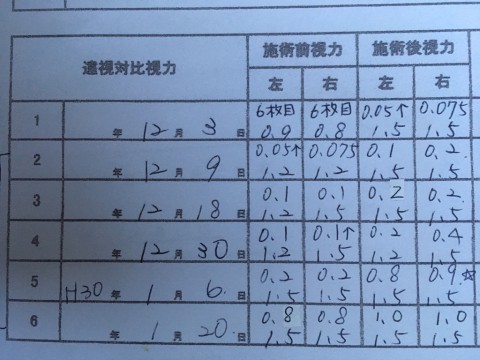 遠視対比視力 施術前視力 施術後視力
左 右 左 右
1 年 12月 3日 6枚目 6枚目 0.05↑ 0.075
0.9 0.8 1.5 1.5
2 年 12月 9日 0.05↑ 0.075 0.1 0.2
1.2 1.2 1.5 1.5
3 年 12月 18日 0.1 0.1 0.2 0.2
1.2 1.5 1.5 1.5
4 年 12月 30日 0.1 0.1↑ 0.2 0.4
1.2 1.5 1.2 1.5
5 H30年 1月 6日 0.2 0.2 0.8 0.9☆
1.5 1.5 1.5 1.5
6 年 1月 20日 0.8 0.8 1.0 1.0
1.5 1.5 1.5 1.5